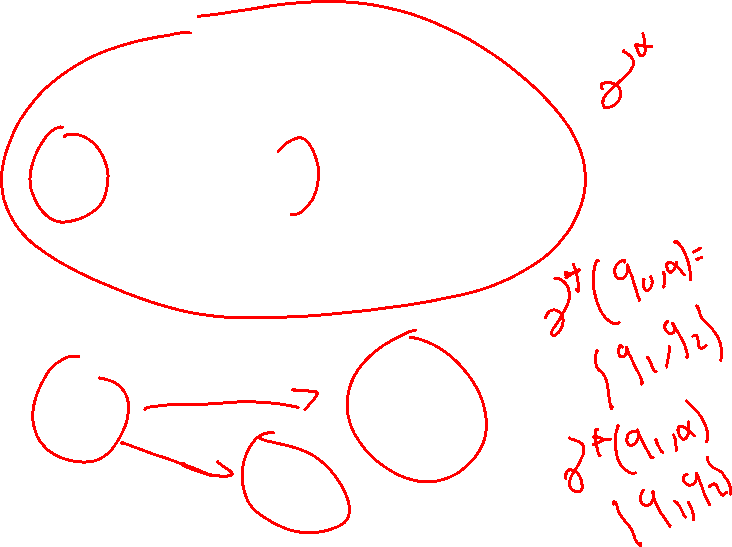 ∂*
∂*(q₀,a)=
{q₁,q₂}
∂*(q₁,a)
{q₁,q₂}